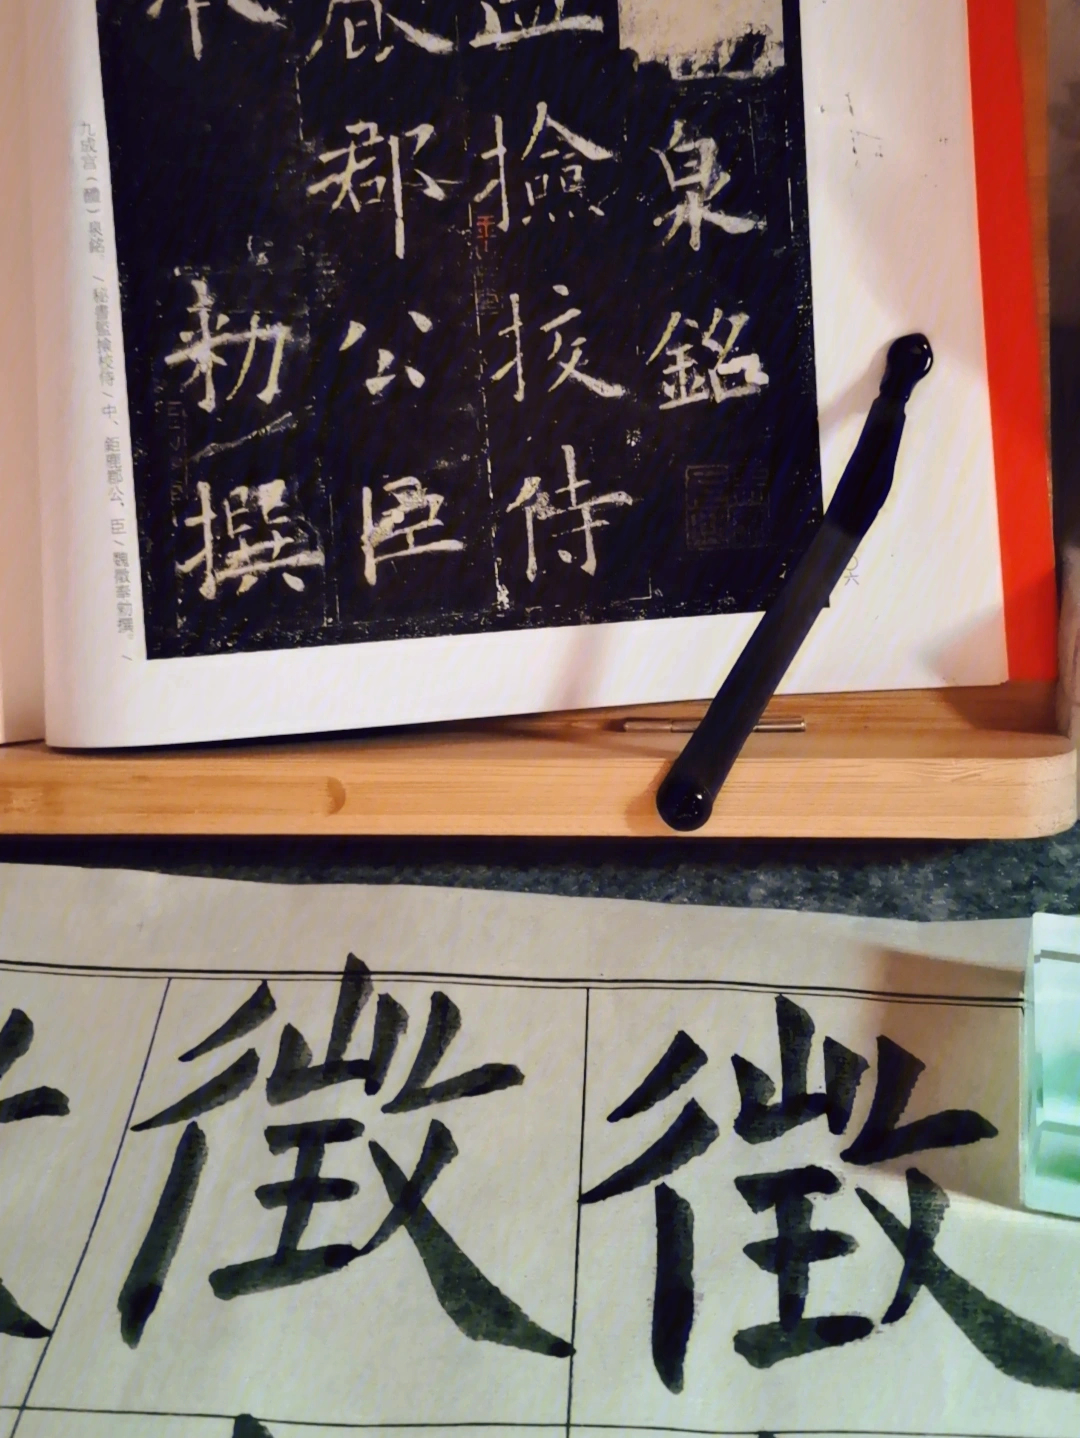 泉銘
撿挍侍
郡公臣
勑撰
九成宮（醴）泉銘。／秘書監撿挍侍／中、鉅鹿郡公、臣／魏徵奉勅撰。／
徴徴